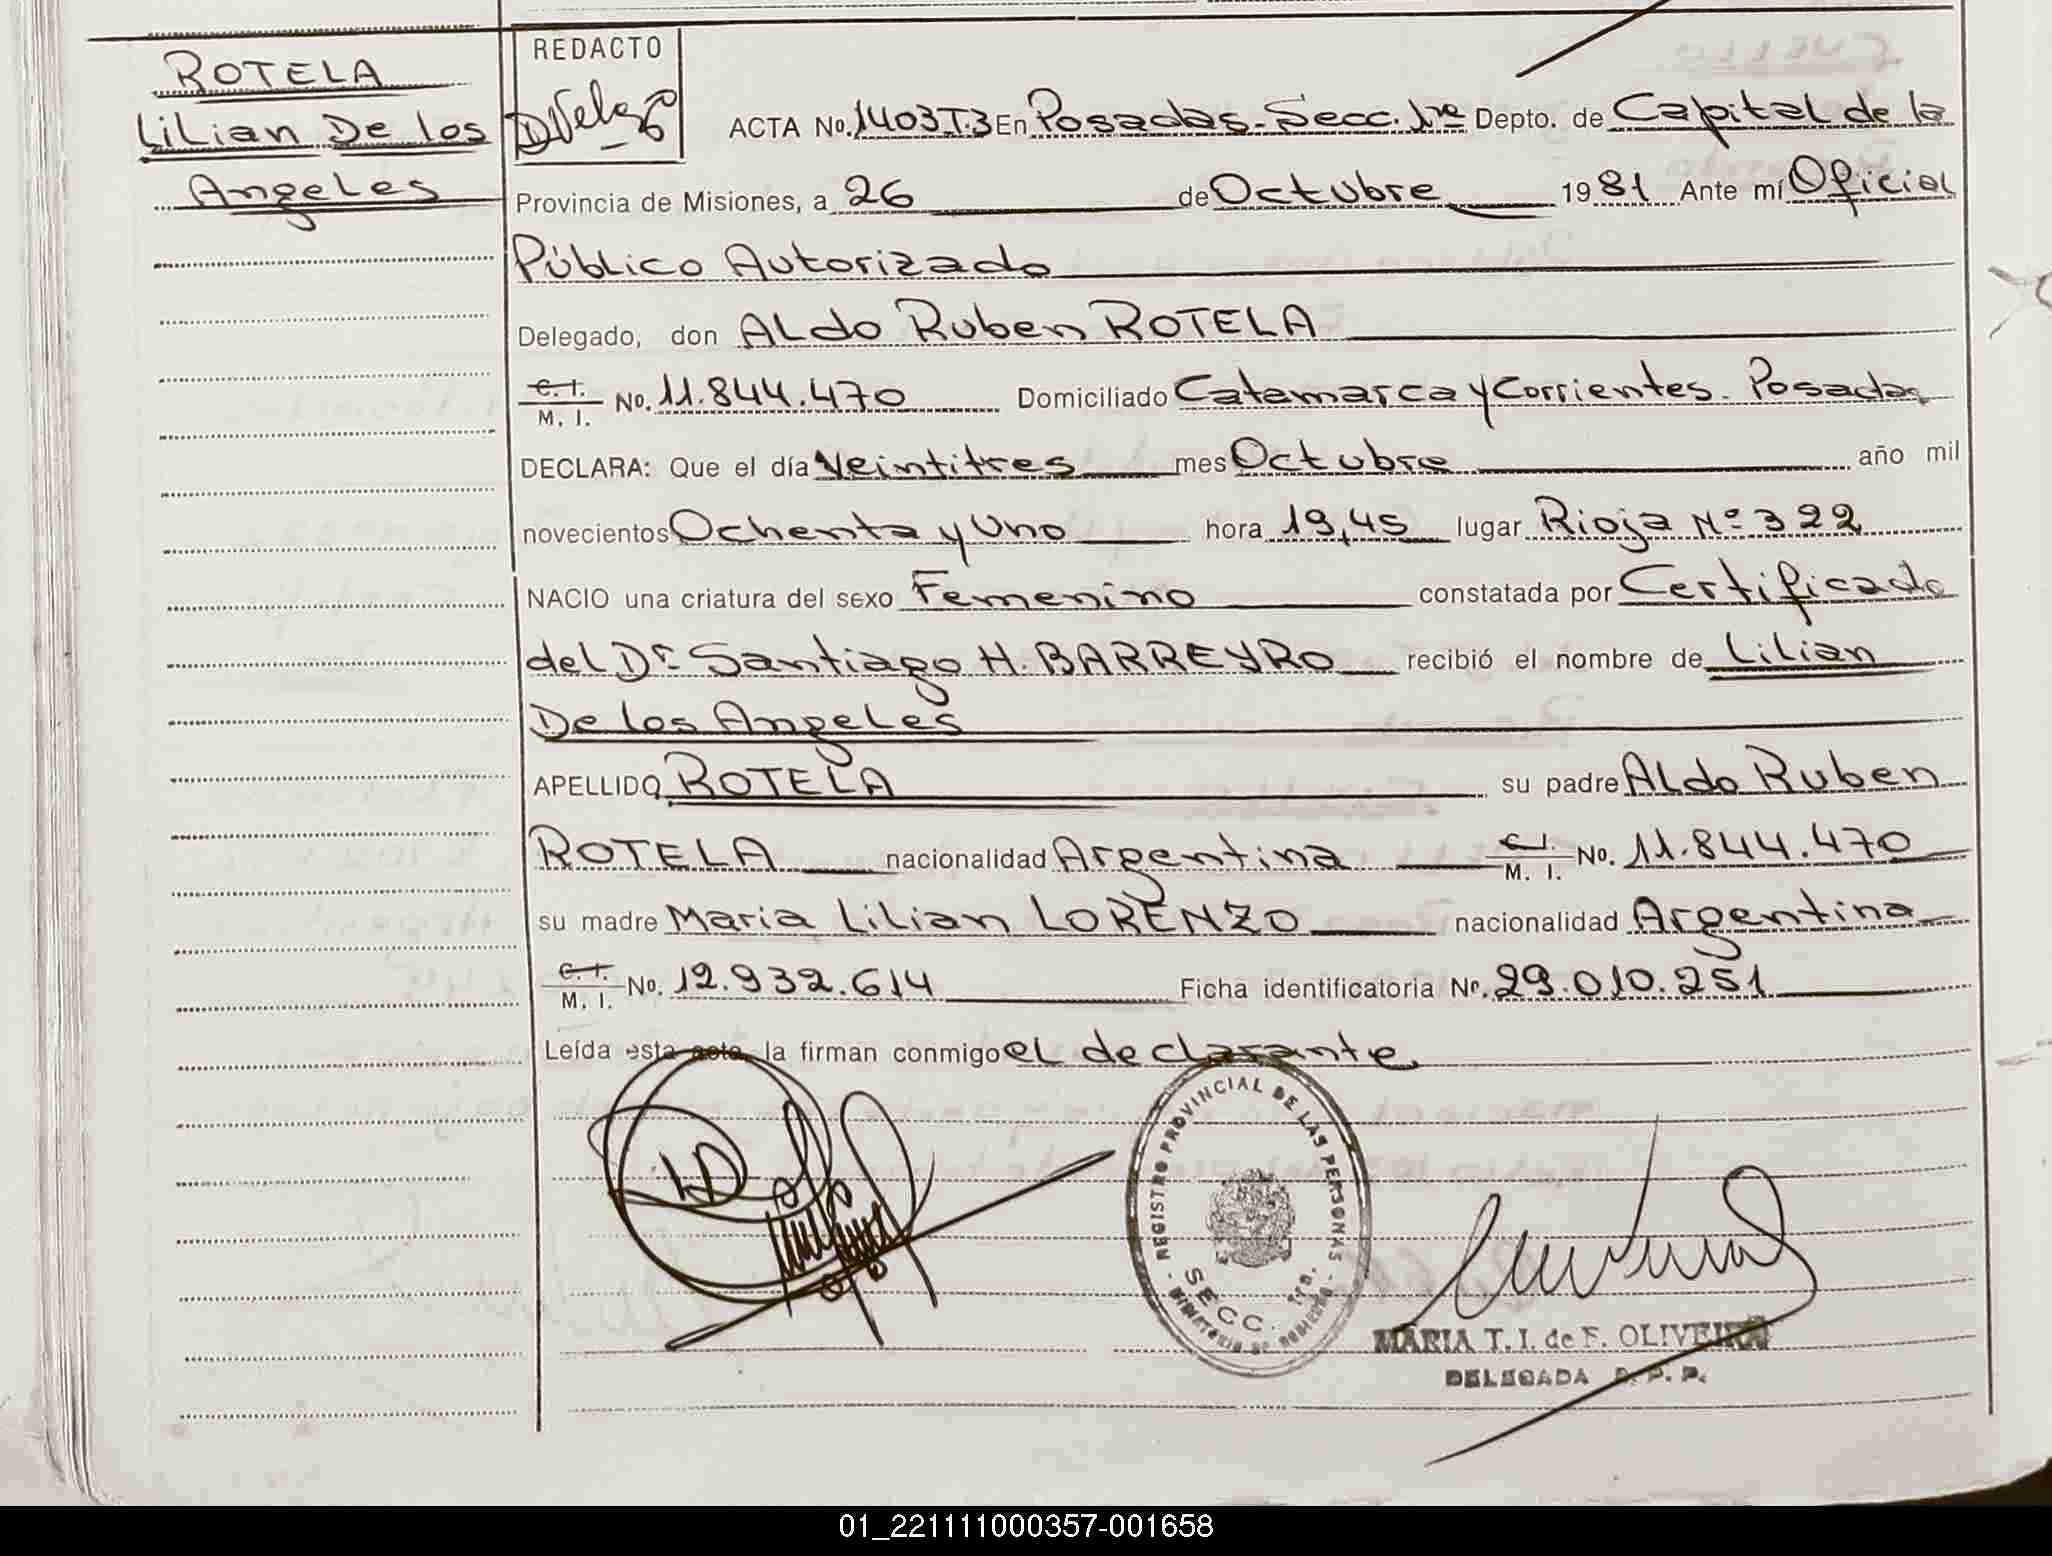 ROTELA
Lilian De los
Angeles
REDACTO
ACTA No. 1403 T.3 En Posadas-Secc. 1ra Depto. de Capital de la
Provincia de Misiones, a 26 de Octubre 1981 Ante mí Oficial
Público Autorizado
Delegado, don Aldo Ruben ROTELA
C. I.
M. I. No. 11.844.470 Domiciliado Catamarca y Corrientes. Posadas
DECLARA: Que el día Veintitres mes Octubre año mil
novecientos Ochenta y Uno hora 19,45 lugar Rioja Nº 322
NACIO una criatura del sexo Femenino constatada por Certificado
del Dr. Santiago H. BARREYRO recibió el nombre de Lilian
De los Angeles
APELLIDO ROTELA su padre Aldo Ruben
ROTELA nacionalidad Argentina C. I. M. I. No. 11.844.470
su madre Maria Lilian LORENZO nacionalidad Argentina
C. I.
M. I. No. 12.932.614 Ficha identificatoria No. 29.010.251
Leída esta acta, la firman conmigo el declarante.
REGISTRO PROVINCIAL DE LAS PERSONAS
SECC.
MINISTERIO DE GOBIERNO
MARIA T. I. de F. OLIVEIRA
DELEGADA R. P. P.
01_221111000357-001658